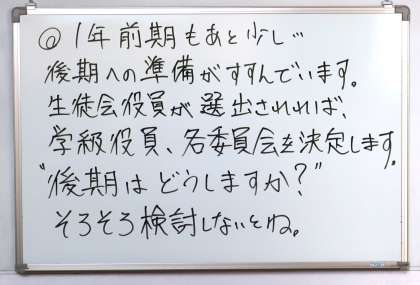 @1年前期もあと少し…
後期への準備がすすんでいます。
生徒会役員が選出されれば、
学級役員、各委員会を決定します。
"後期はどうしますか？"
そろそろ検討しないとね。